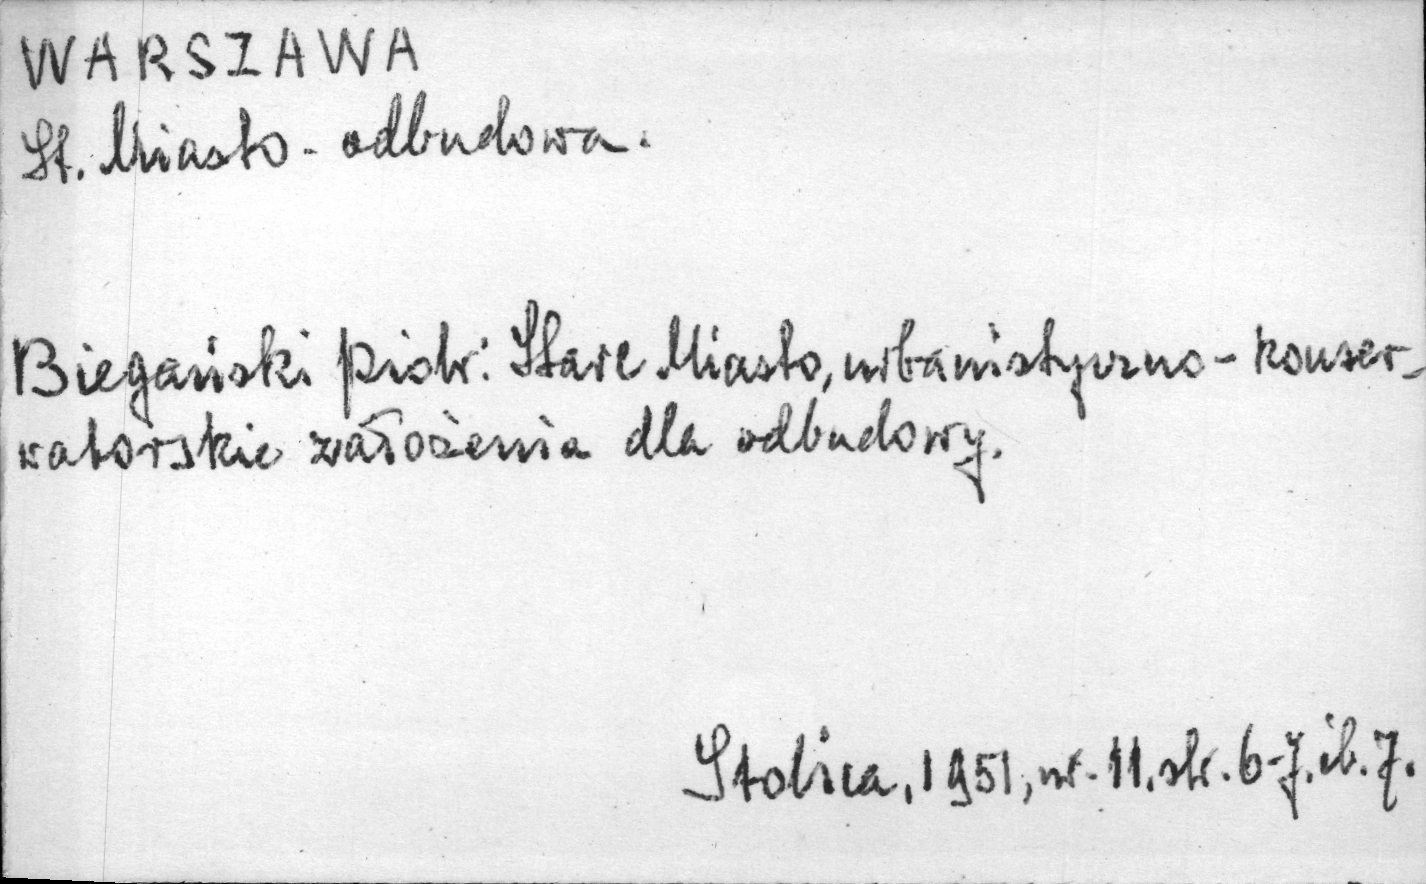 WARSZAWA
St. Miasto - odbudowa.
Biegański Piotr: Stare Miasto, urbanistyczno - konser-
watorskie założenia dla odbudowy.
Stolica, 1951, nr. 11. str. 6-7. ib. 7.